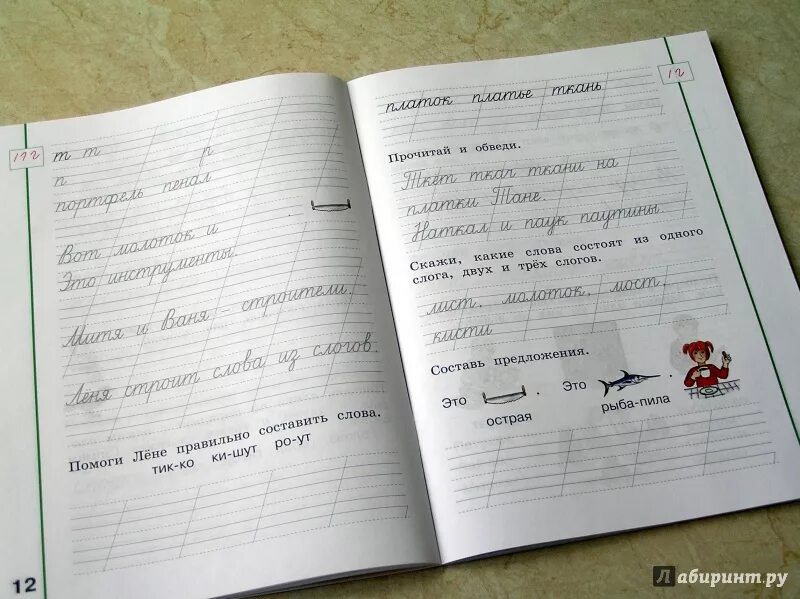 т т
п р
портфель пенал
Вот молоток и
Это инструменты.
Митя и Ваня – строители.
Лёня строит слова из слогов.
Помоги Лёне правильно составить слова.
тик-ко ки-шут ро-ут
12
платок платье ткань
Прочитай и обведи.
Ткёт ткач ткани на
платки Тане.
Наткал и паук паутины.
Скажи, какие слова состоят из одного
слога, двух и трёх слогов.
лист, молоток, мост,
кисти
Составь предложения.
Это . Это .
острая рыба-пила
Лабиринт.ру